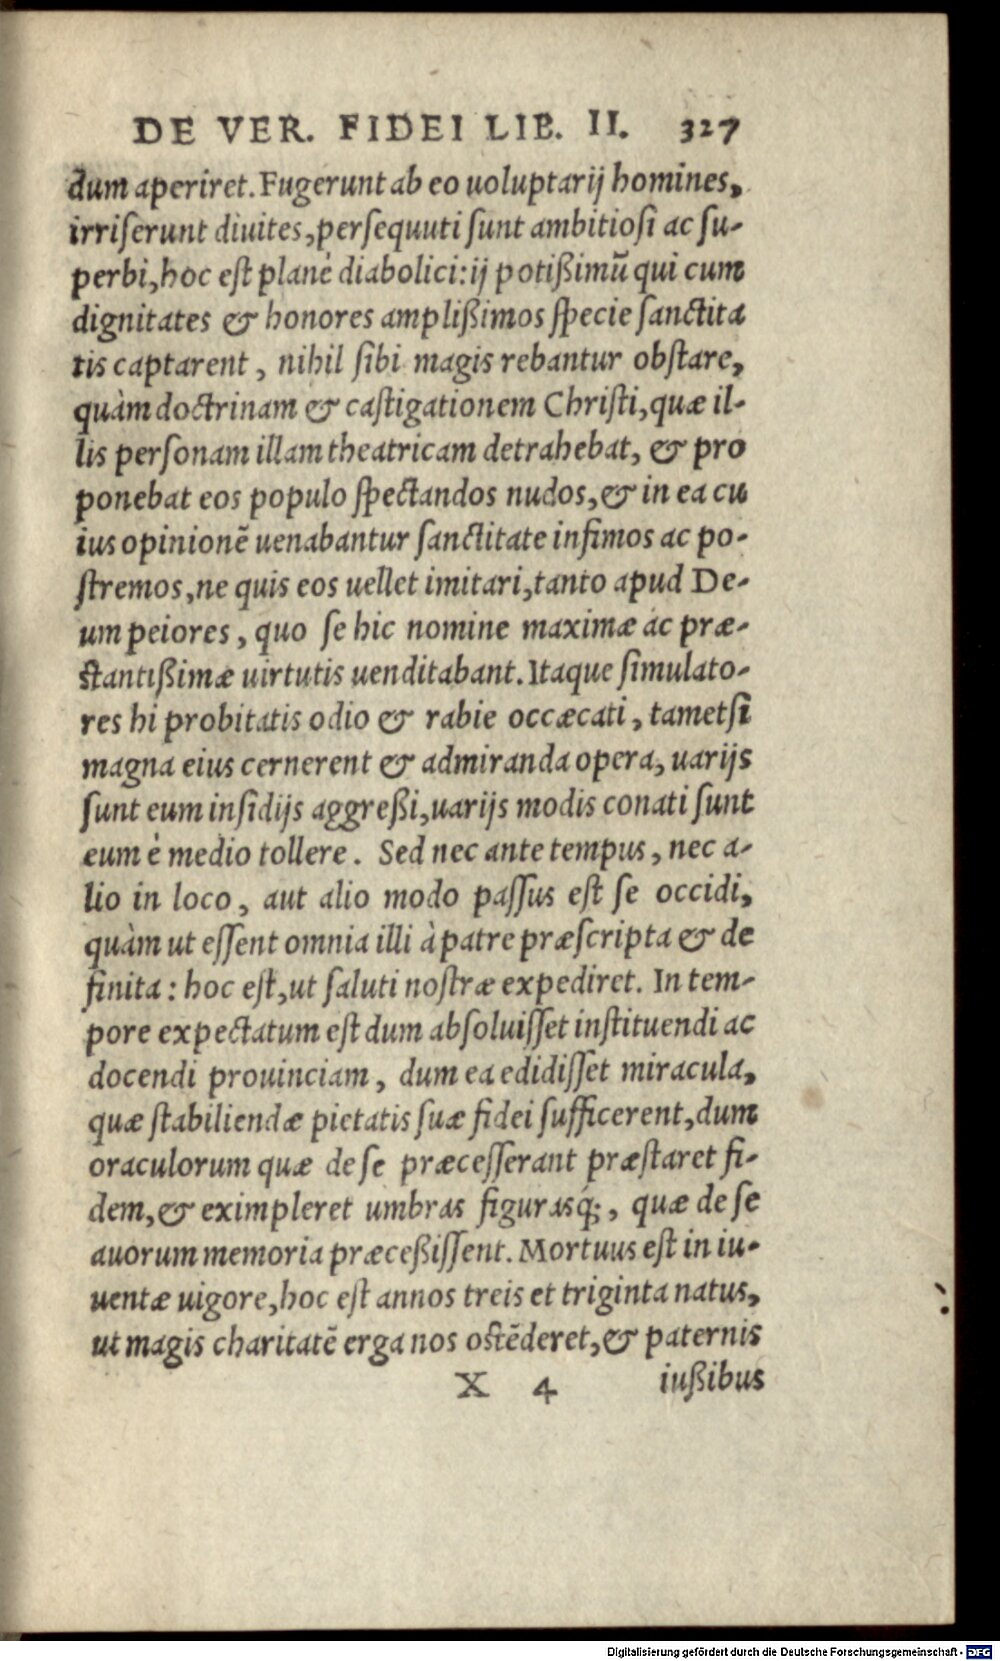 DE VER. FIDEI LIB. II. 327
dum aperiret. Fugerunt ab eo uoluptarij homines,
irriſerunt diuites, perſequuti ſunt ambitioſi ac ſu-
perbi, hoc eſt planè diabolici: ij potißimũ qui cum
dignitates & honores amplißimos ſpecie ſanctita
tis captarent, nihil ſibi magis rebantur obſtare,
quàm doctrinam & caſtigationem Chriſti, quæ il-
lis perſonam illam theatricam detrahebat, & pro
ponebat eos populo ſpectandos nudos, & in ea cu
ius opinionẽ uenabantur ſanctitate infimos ac po-
ſtremos, ne quis eos uellet imitari, tanto apud De-
um peiores, quo ſe hic nomine maximæ ac præ-
ſtantißimæ uirtutis uenditabant. Itaque ſimulato-
res hi probitatis odio & rabie occæcati, tametſi
magna eius cernerent & admiranda opera, uarijs
ſunt eum inſidijs aggreßi, uarijs modis conati ſunt
eum è medio tollere. Sed nec ante tempus, nec a-
lio in loco, aut alio modo paſſus eſt ſe occidi,
quàm ut eſſent omnia illi à patre præſcripta & de
finita: hoc eſt, ut ſaluti noſtræ expediret. In tem-
pore expectatum eſt dum abſoluiſſet inſtituendi ac
docendi prouinciam, dum ea edidiſſet miracula,
quæ ſtabiliendæ pietatis ſuæ fidei ſufficerent, dum
oraculorum quæ de ſe præceſſerant præſtaret fi-
dem, & eximpleret umbras figurasq́;, quæ de ſe
auorum memoria præceßiſſent. Mortuus eſt in iu-
uentæ uigore, hoc eſt annos treis et triginta natus,
ut magis charitatẽ erga nos oſtẽderet, & paternis
X 4 iußibus
Digitalisierung gefördert durch die Deutsche Forschungsgemeinschaft - DFG